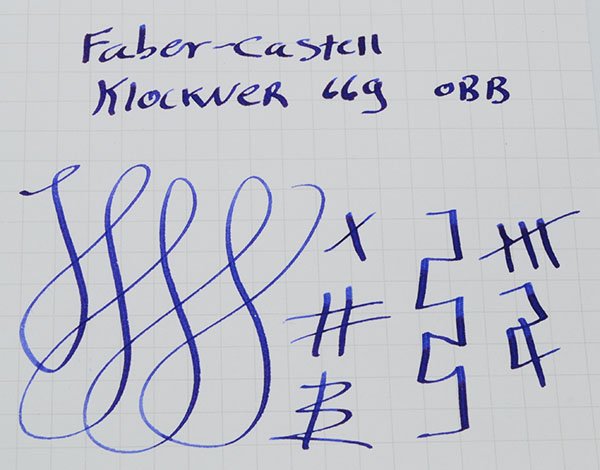 Faber-Castell
Klockner 66g OBB